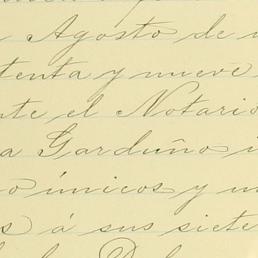 Agosto de
tenta y nueve
te el Notario
a Garduño
o únicos y
s á sus siete